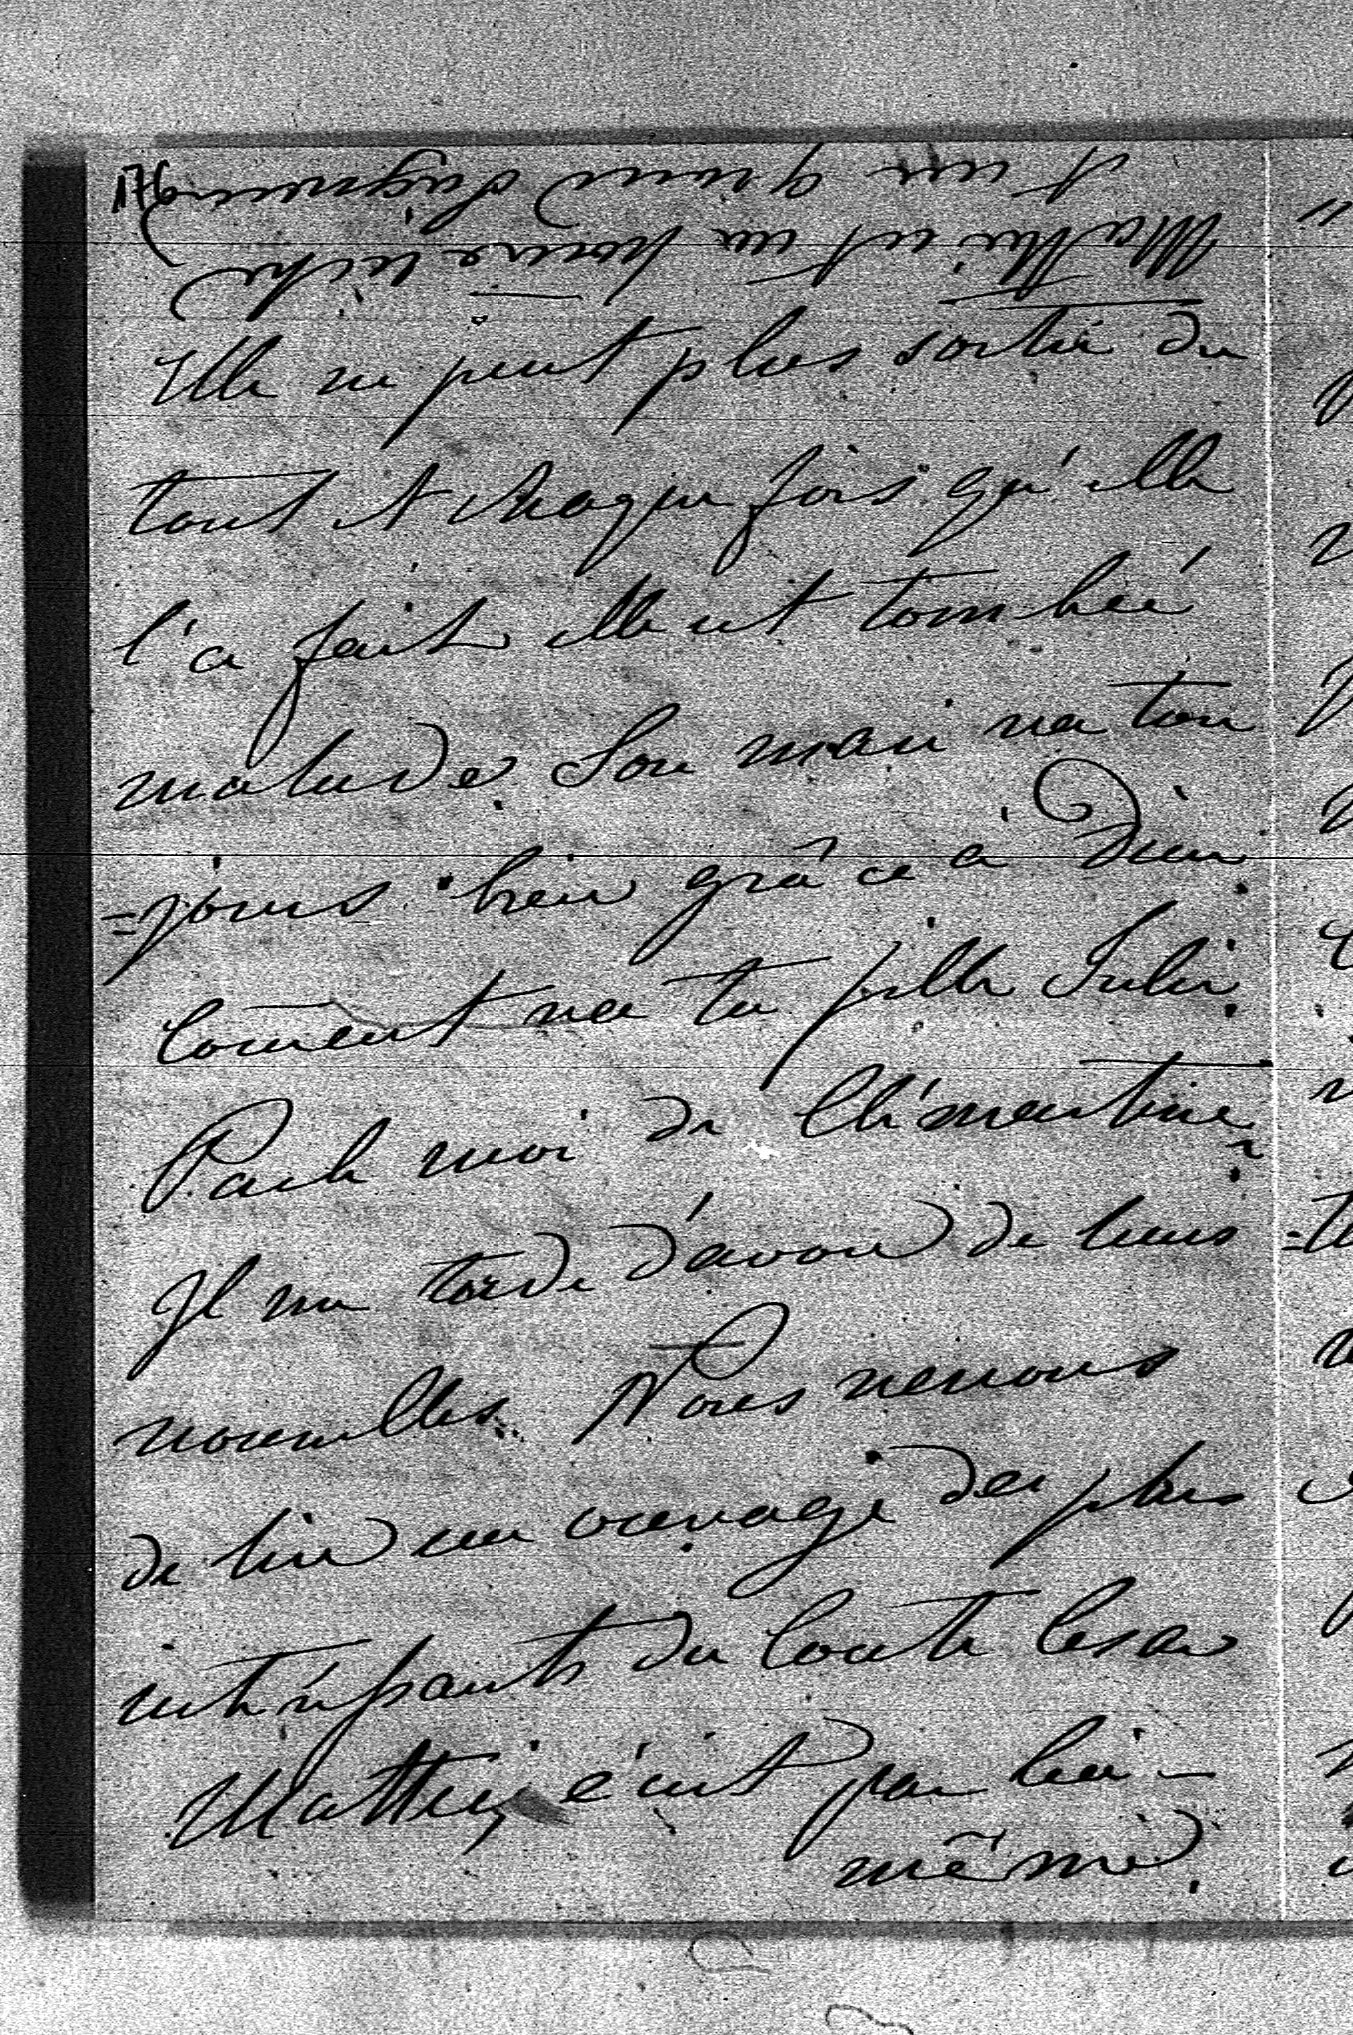 176
Mattei est un homme riche
et un grand Seigneur
Elle ne peut plus sortir du
tout et chaque fois qu'elle
l'a fait elle est tombée
malade. Son mari va tou
=jours bien grâce à Dieu.
Coment va ta fille Julie.
Parle moi de Clémentine
Il me tarde d'avoir de leurs
nouvelles. Nous venons
de lire un ouvrage des plus
intéressants du Comte Cesar
Mattei, écrit par lui-
même.